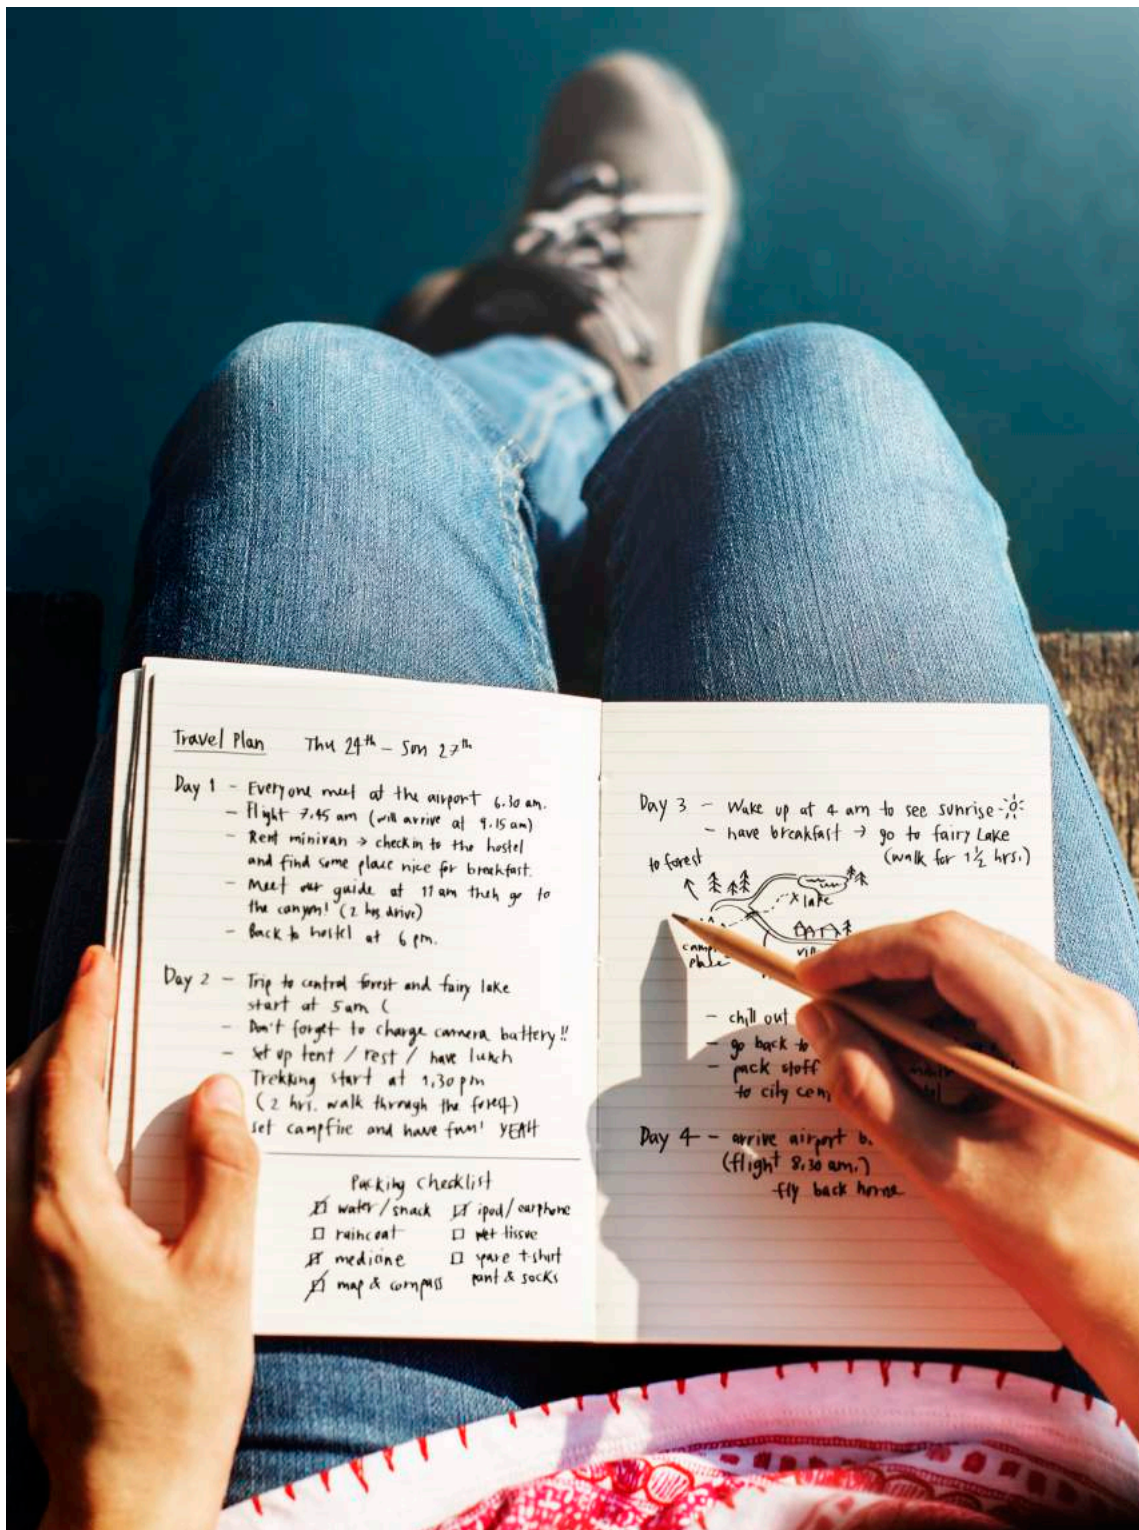 Travel Plan Thu 24th – Sun 27th
Day 1 – Everyone meet at the airport 6.30 am.
– Flight 7.45 am (will arrive at 9.15 am)
– Rent minivan → check in to the hostel
and find some place nice for breakfast.
– Meet our guide at 11 am then go to
the canyon! (2 hrs drive)
– Back to hostel at 6 pm.
Day 2 – Trip to central forest and fairy lake
start at 5am (
– Don't forget to charge camera battery!!
– Set up tent / rest / have lunch
Trekking start at 1.30 pm
(2 hrs. walk through the forest)
set campfire and have fun! YEAH
Packing Checklist
water/snack ipod/earphone
raincoat wet tissue
medicine spare t-shirt
map & compass pant & socks
Day 3 – Wake up at 4 am to see sunrise
– have breakfast → go to fairy Lake
(walk for 1½ hrs.)
to forest
x lake
place
– chill out
– go back to
– pack stuff
to city
Day 4 – arrive airport
(flight 8.30 am.)
fly back home